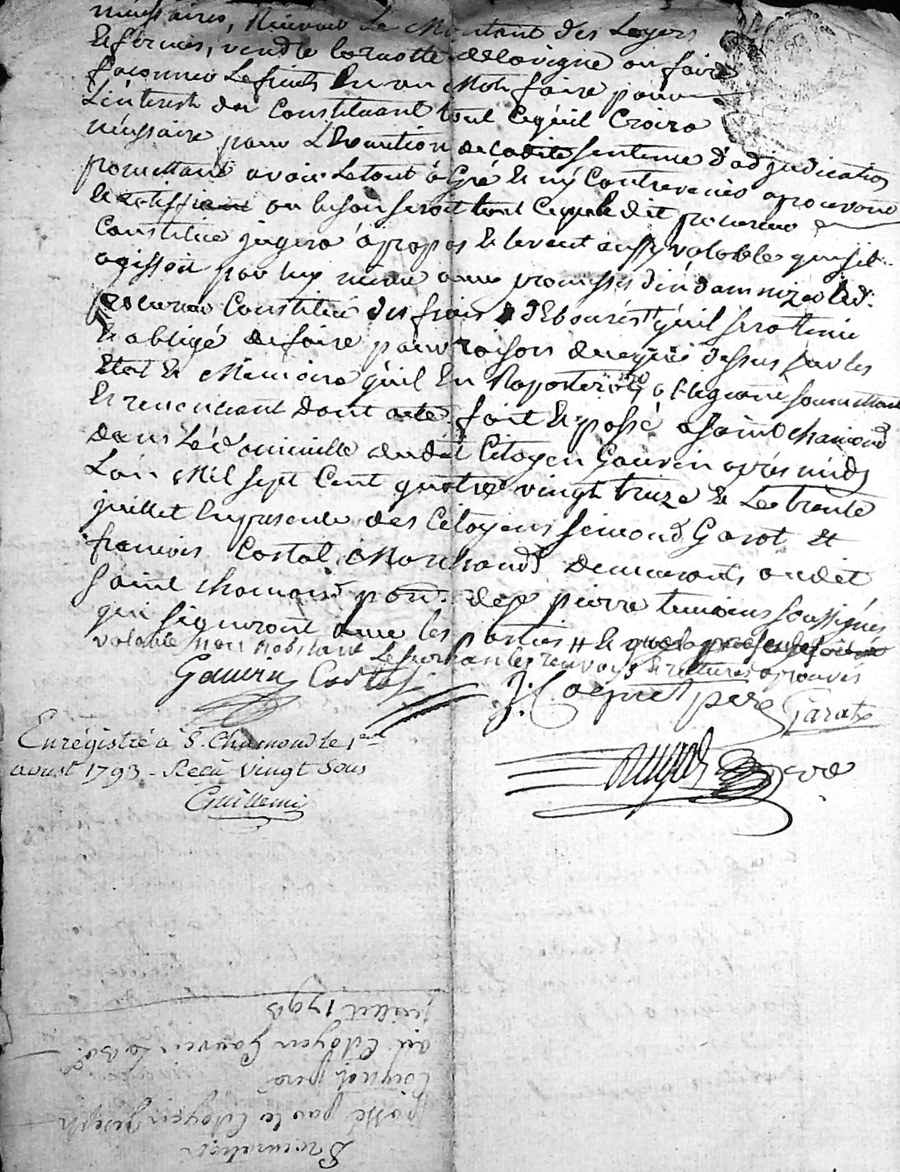 nécessaires, Recevoir Le Montant des Loyers
& fermes, vendre la recolte de la vigne ou faire
façonner Le fruit En un Mot faire pour
L'interest du Constituant tout Cequ'il Croira
nécessaire pour L'Execution de ladite sentence d'adjudication
promettant avoir Letout à Gré & ny Contrevenir aprouvant
& ratiffiant au besoin seroit tout Ceque ledit procureur
Constitué jugera à propos & levent aussy valable que s'il
agissoit par luy meme avec promesses d'indamnizer led.
procureur Constitué des frais & debourés qu'il sera tenu
& obligé de faire pour raison de ce que dessus sur les
Etat & Memoire qu'il En Raportera obligeant soumettant
& renonçant dont acte fait & passé a Saint chamond
dans Le domicille dudit Citoyen Gauvin après midy
L'an Mil sept Cent quatre vingt treize & Le trente
juillet En presence des Citoyens Simond Garat et
francois Costal Marchands demeurants audit
Saint chamond parr. de St pierre temoins soussignés
qui signeront avec les parties # &
valable non nobstant Le surhan les renvoys & ratures aprouvés
Gauvin Costal J. Coignet pere Garat
Enrégistré à S. Chamond le 1er
aoust 1793 - Reçu vingt sous
Guillemin
Procuration
passé par le Citoyen joseph
Coignet pere
au Citoyen Gauvin
juillet 1793